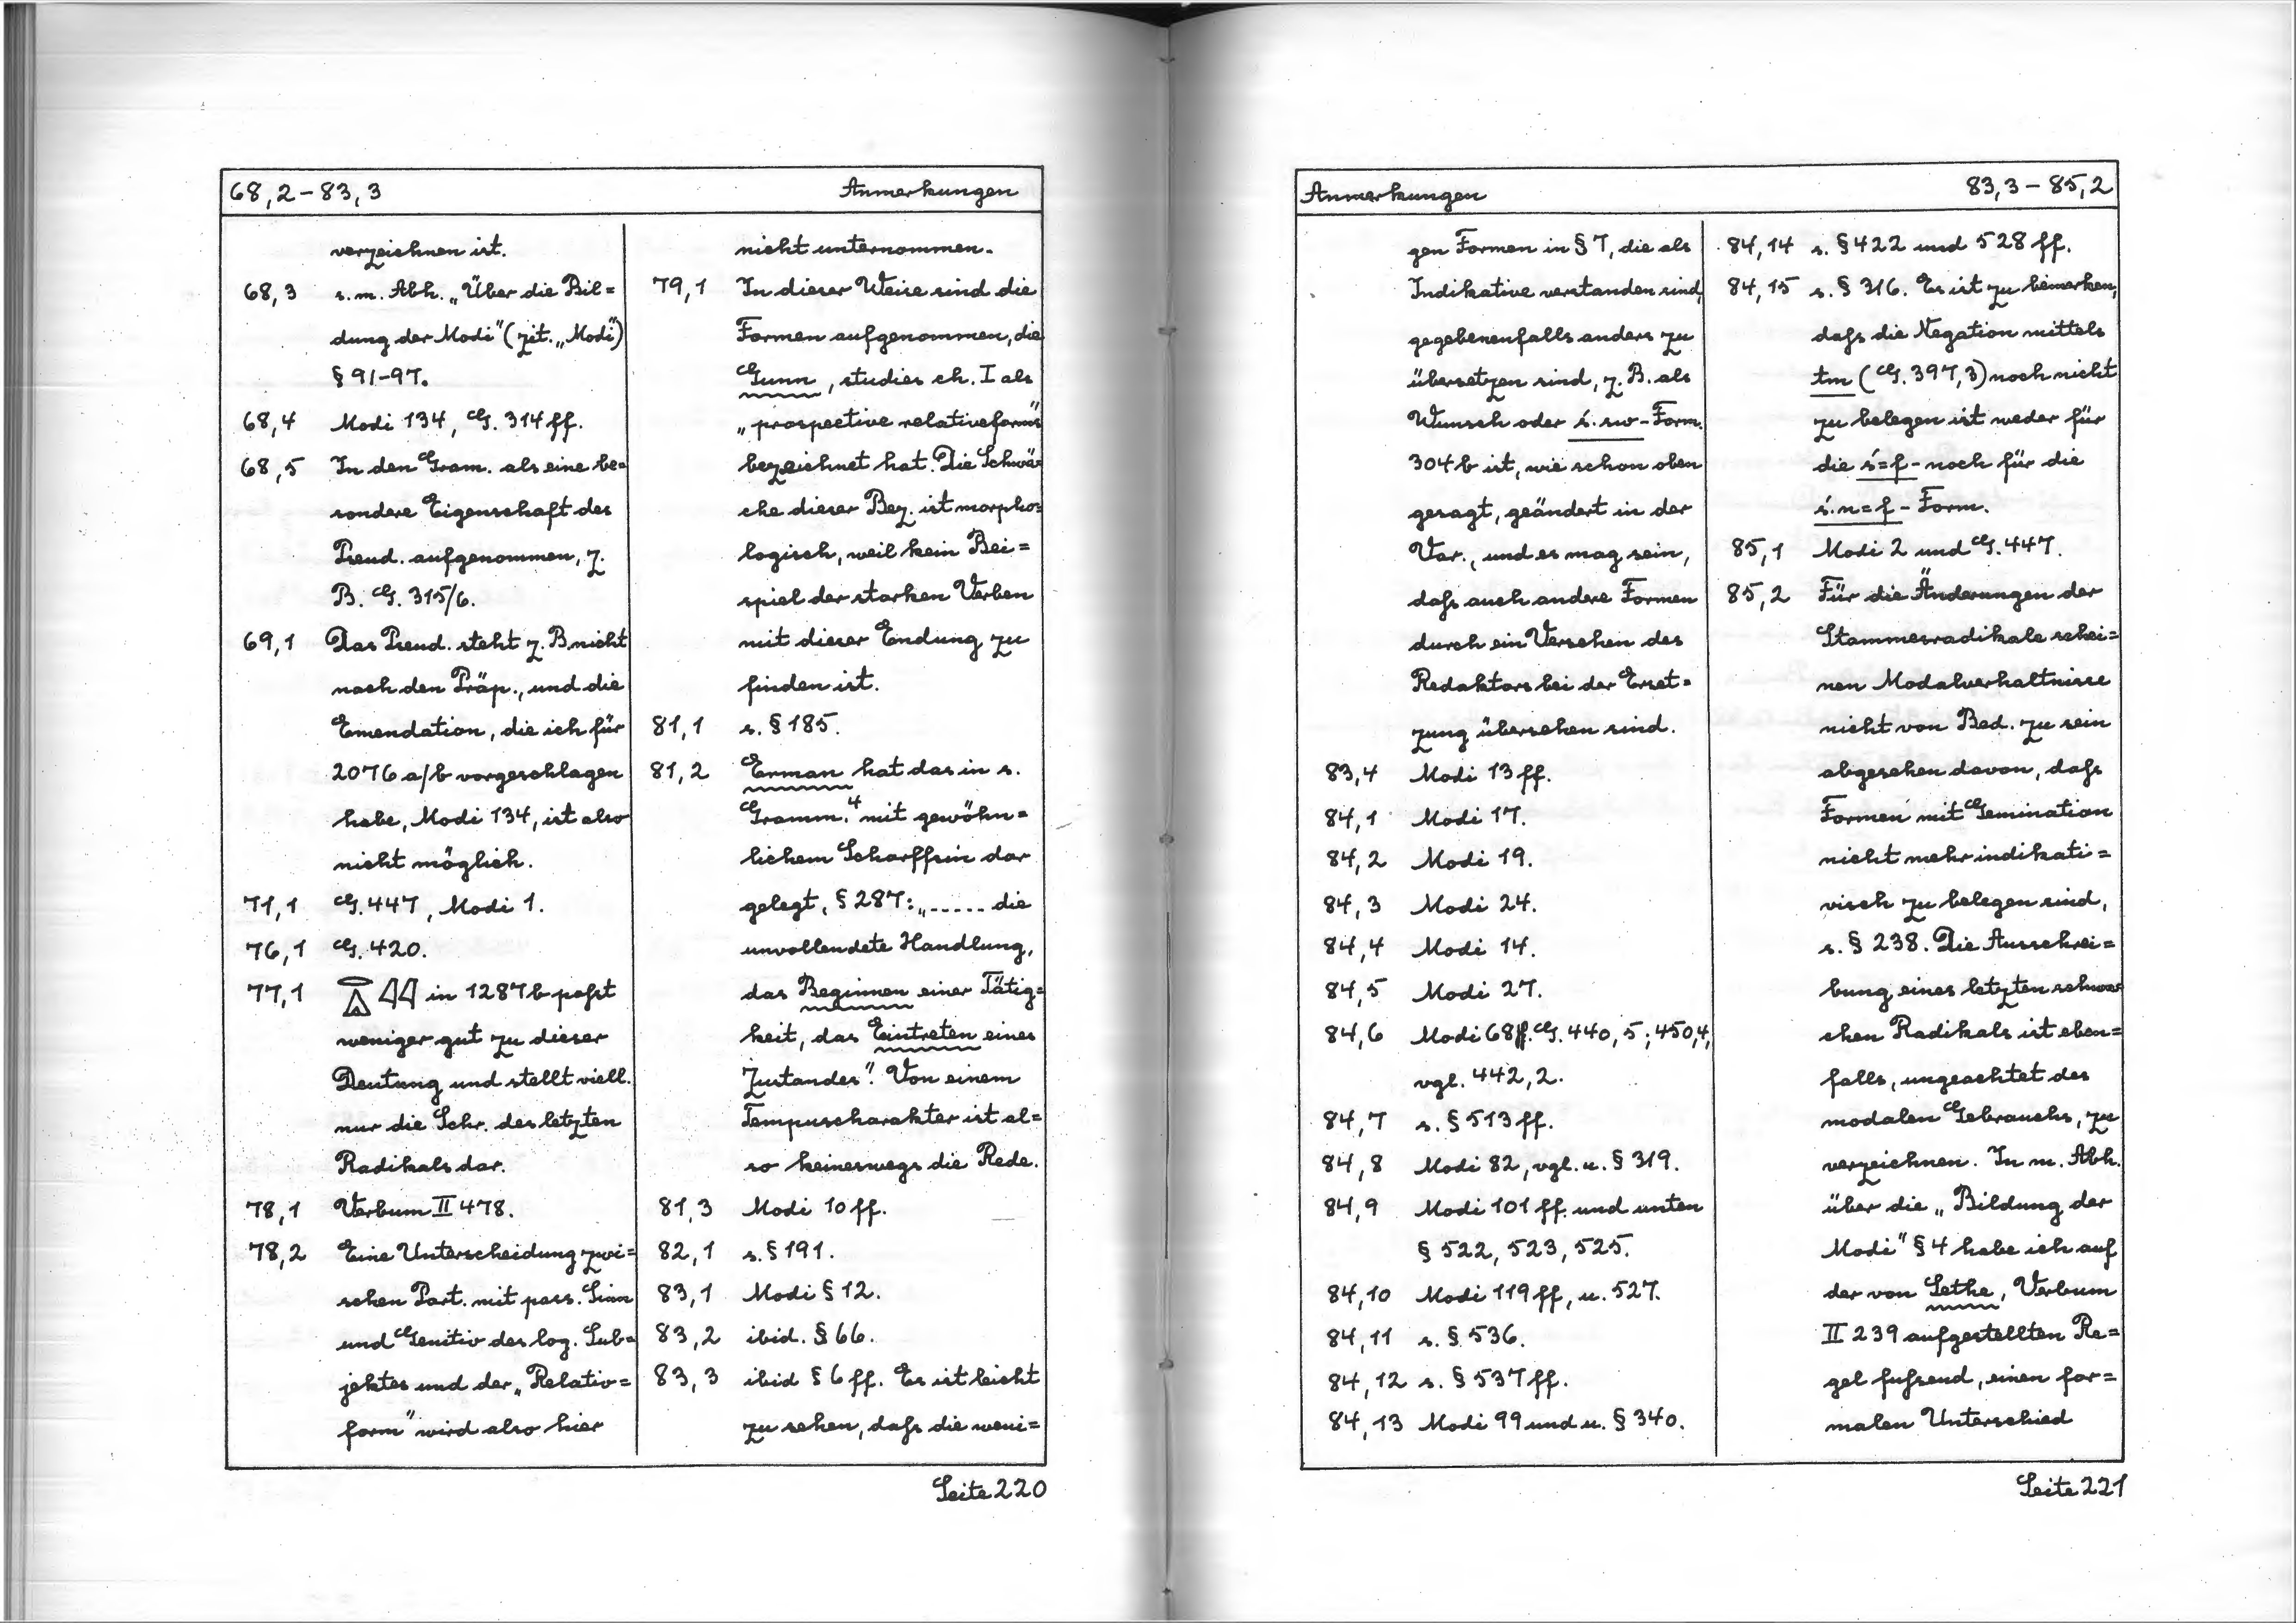 68,2 – 83,3 Anmerkungen
verzeichnen ist.
68,3 s. m. Abh. „Über die Bil=
dung der Modi" (zit. „Modi")
§ 91–97.
68,4 Modi 134, G. 314 ff.
68,5 In den Gram. als eine be=
sondere Eigenschaft des
Pseud. aufgenommen, z.
B. G. 315/6.
69,1 Das Pseud. steht z. B nicht
nach den Präp., und die
Emendation, die ich für
2076 a/b vorgeschlagen
habe, Modi 134, ist also
nicht möglich.
71,1 G. 447, Modi 1.
76,1 G. 420.
77,1 in 1287 b paßt
weniger gut zu dieser
Deutung und stellt viell.
nur die Schr. des letzten
Radikals dar.
78,1 Verbum II 478.
78,2 Eine Unterscheidung zwi=
schen Part. mit pass. Sinn
und Genitiv des log. Sub=
jektes und der „Relativ=
form" wird also hier
nicht unternommen.
79,1 In dieser Weise sind die
Formen aufgenommen, die
Gunn, studies ch. I als
„prospective relativeforms"
bezeichnet hat. Die Schwä=
che dieser Bez. ist morpho=
logisch, weil kein Bei=
spiel der starken Verben
mit dieser Endung zu
finden ist.
81,1 s. § 185.
81,2 Erman hat das in s.
Gramm.⁴ mit gewöhn=
lichem Scharffsin dar
gelegt, § 287: „----- die
unvollendete Handlung,
das Beginnen einer Tätig=
keit, das Eintreten eines
Zustandes". Von einem
Tempuscharakter ist al=
so keineswegs die Rede.
81,3 Modi 10 ff.
82,1 s. § 191.
83,1 Modi § 12.
83,2 ibid. § 66.
83,3 ibid § 6 ff. Es ist leicht
zu sehen, daß die weni=
Seite 220
Anmerkungen 83,3 – 85,2
gen Formen in § 7, die als
Indikative verstanden sind,
gegebenenfalls anders zu
übersetzen sind, z. B. als
Wunsch oder ś.rw-Form.
304 b ist, wie schon oben
gesagt, geändert in der
Var., und es mag sein,
daß auch andere Formen
durch ein Versehen des
Redaktors bei der Erset=
zung übersehen sind.
83,4 Modi 13 ff.
84,1 Modi 17.
84,2 Modi 19.
84,3 Modi 24.
84,4 Modi 14.
84,5 Modi 27.
84,6 Modi 68 ff. G. 440,5; 450,4,
vgl. 442,2.
84,7 s. § 513 ff.
84,8 Modi 82, vgl. u. § 319.
84,9 Modi 101 ff. und unten
§ 522, 523, 525.
84,10 Modi 119 ff, u. 527.
84,11 s. § 536.
84,12 s. § 537 ff.
84,13 Modi 99 und u. § 340.
84,14 s. § 422 und 528 ff.
84,15 s. § 316. Es ist zu bemerken,
daß die Negation mittels
tm (G. 397,3) noch nicht
zu belegen ist weder für
die ś=f - noch für die
ś.n=f - Form.
85,1 Modi 2 und G. 447.
85,2 Für die Änderungen der
Stammesradikale schei=
nen Modalverhaltnisse
nicht von Bed. zu sein
abgesehen davon, daß
Formen mit Gemination
nicht mehr indikati=
visch zu belegen sind,
s. § 238. Die Ausschrei=
bung eines letzten schwa=
chen Radikals ist eben=
falls, ungeachtet des
modalen Gebrauchs, zu
verzeichnen. In m. Abh.
über die „Bildung der
Modi" § 4 habe ich auf
der von Sethe, Verbum
II 239 aufgestellten Re=
gel fußend, einen for=
malen Unterschied
Seite 221